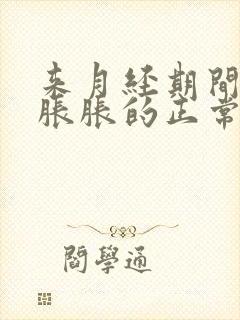 来月经期間
脹脹的正常
閻學通